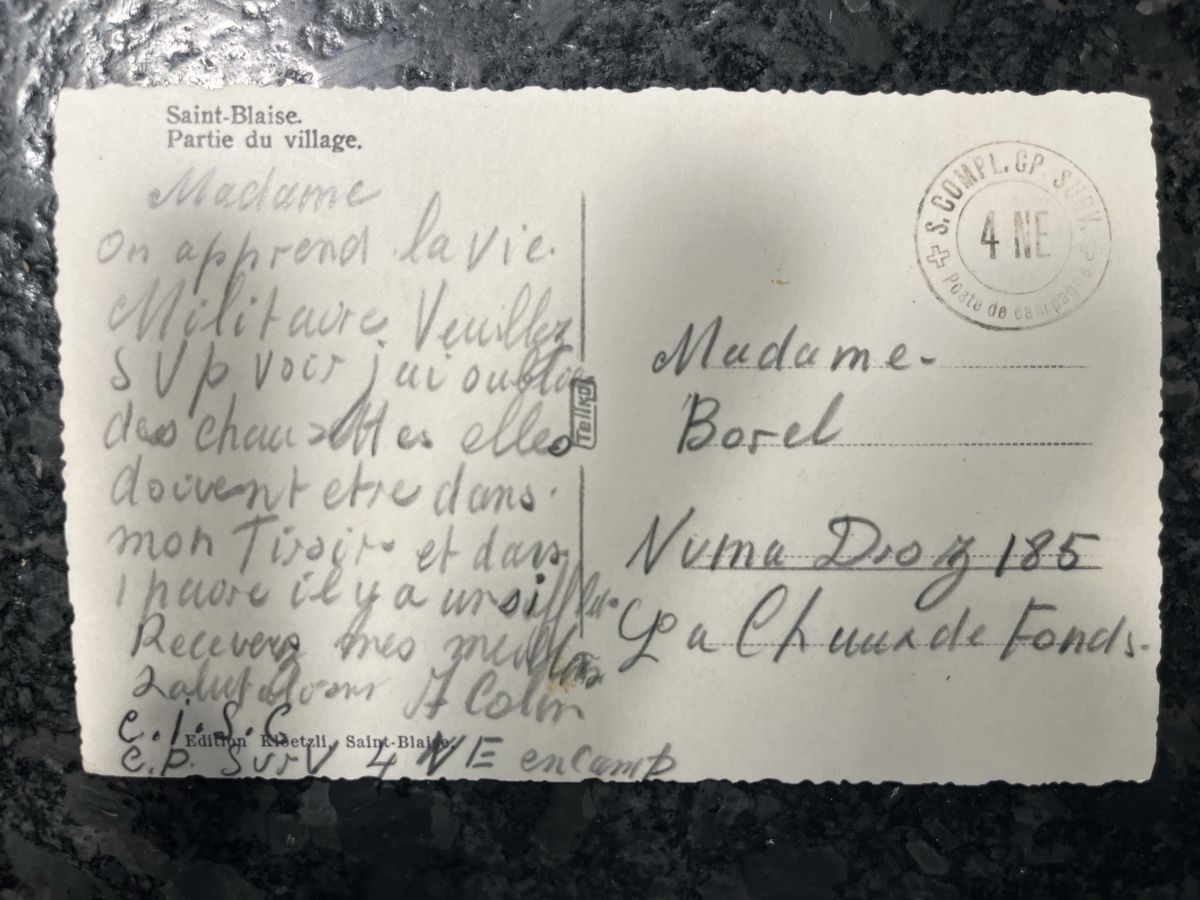 Saint-Blaise.
Partie du village.
Madame
On apprend la vie.
Militaire Veuillez
S V p voir j'ai oublié
des chaussettes elles
doivent etre dans
mon Tiroir et dans
1 paire il y a un sifflet
Recevez mes meilleures
Salutations A Colin
C. I. S. C
Edition Kloetzli, Saint-Blaise.
C.P. Surv 4 NE en camp
Tellko
S. COMPL. GP. SURV.
4 NE
Poste de campagne
Madame
Borel
Numa Droz 185
La Chaux de Fonds.